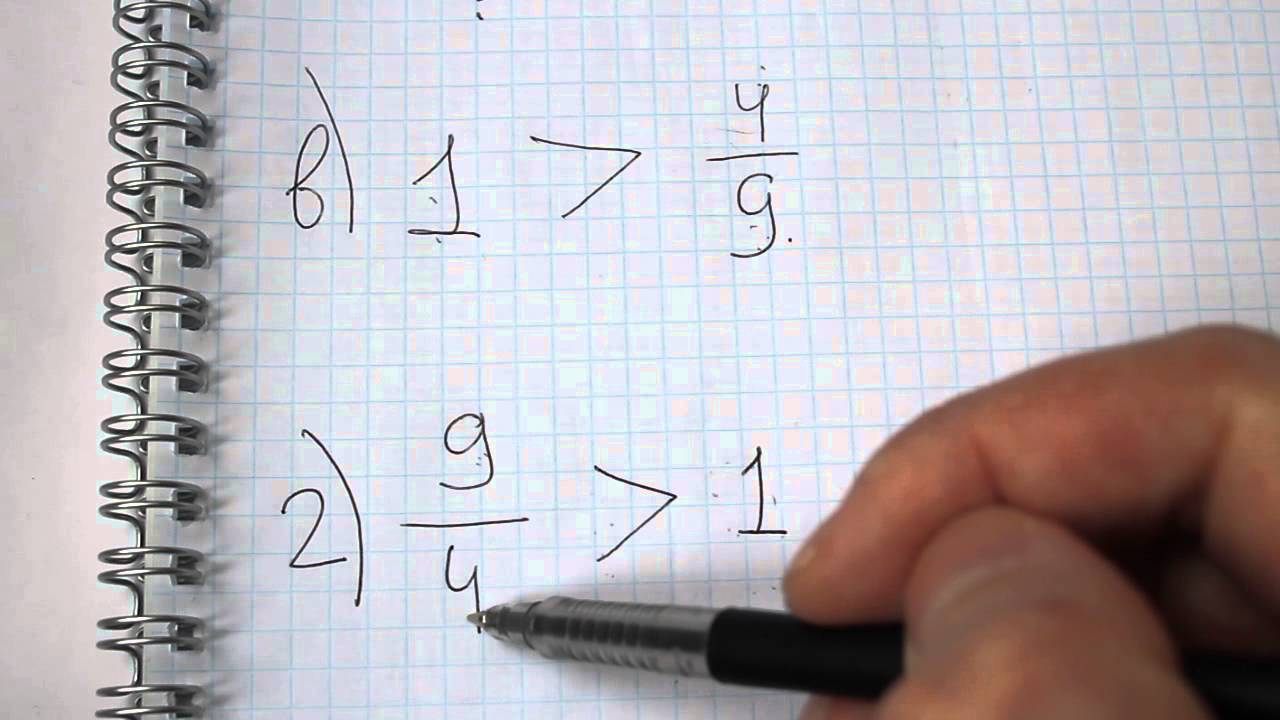 в) 1 > 4/9
2) 9/4 > 1